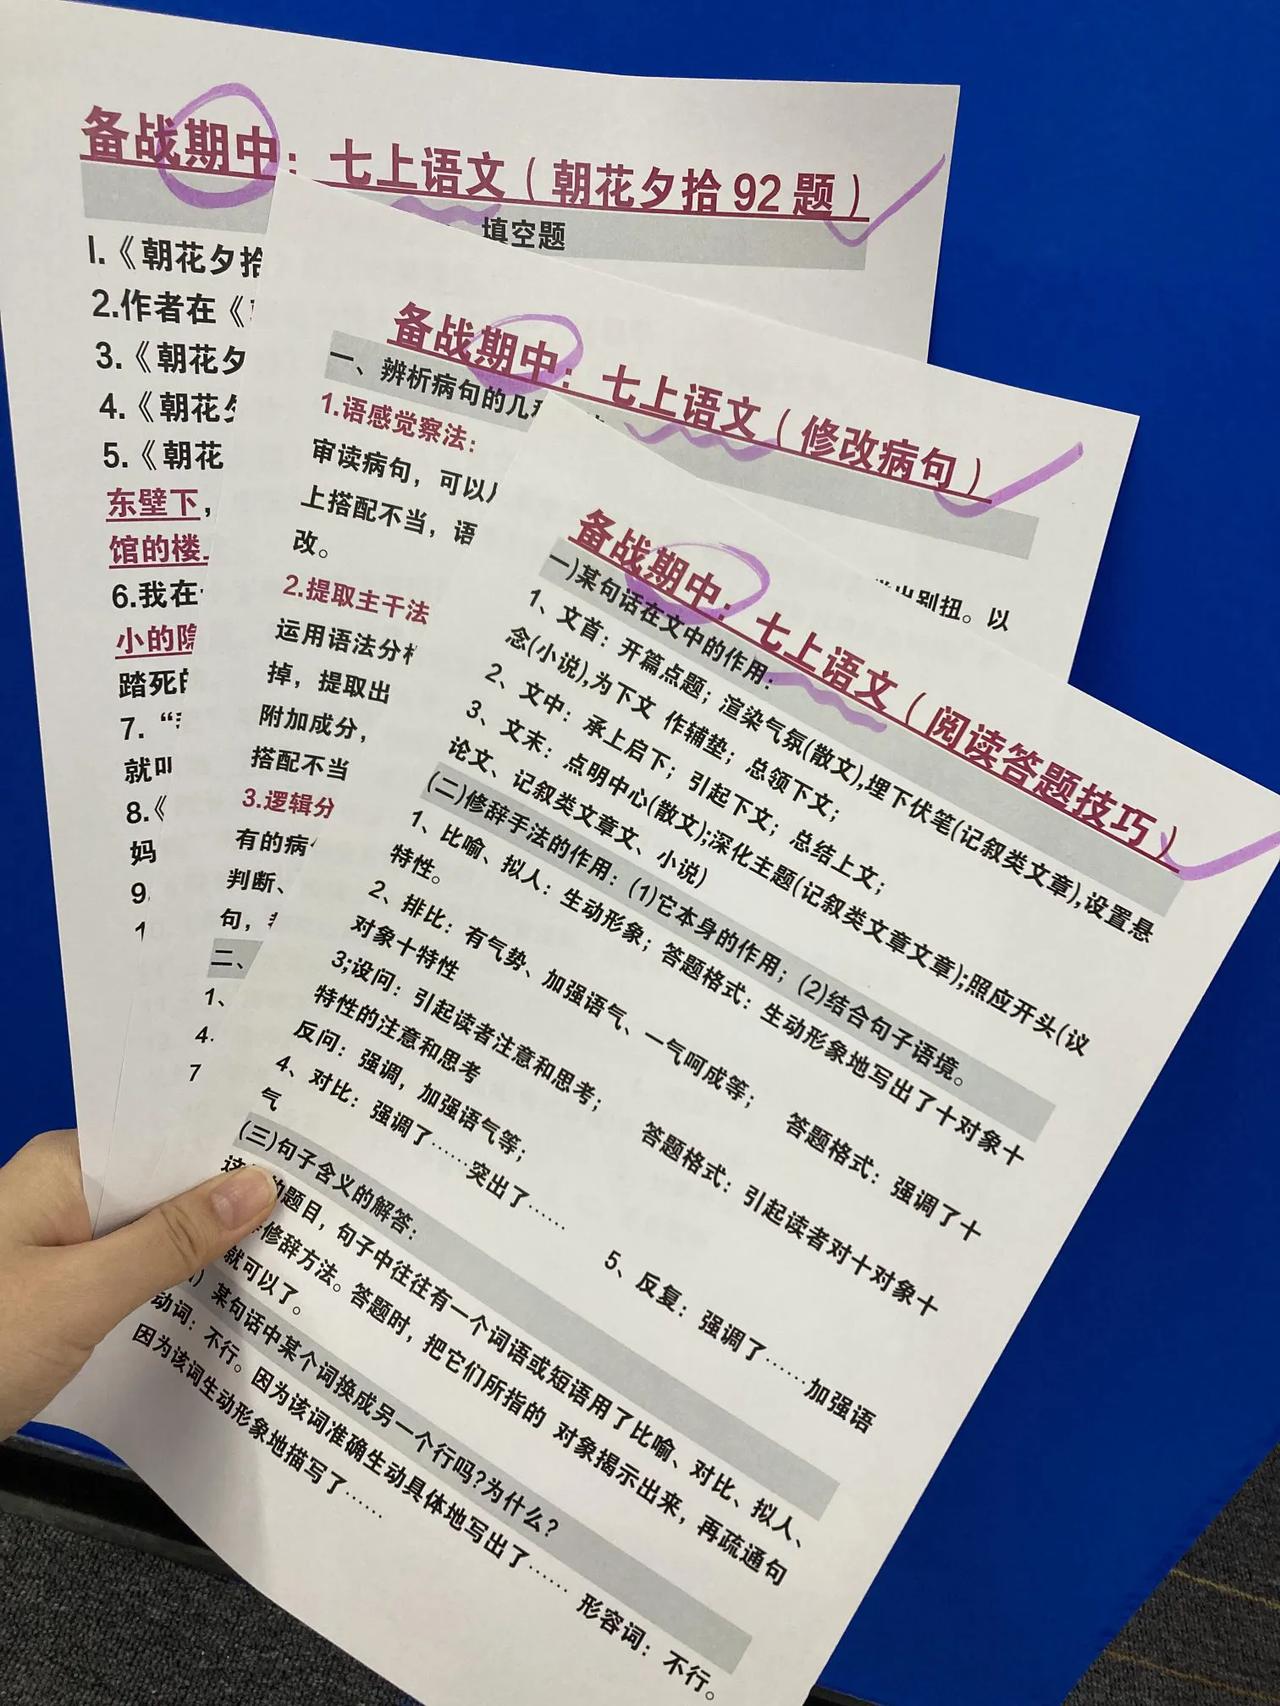 备战期中：七上语文（朝花夕拾92题）
填空题
1.《朝花夕拾
2.作者在《
3.《朝花夕
4.《朝花
5.《朝花
东壁下，
馆的楼
6.我在
小的隐
踏死
7.“
就叫
8.《
妈
9
1
备战期中：七上语文（修改病句）
一、辨析病句的几
1.语感觉察法：
审读病句，可以
出别扭。以
上搭配不当，语
改。
2.提取主干法
运用语法分析
掉，提取出
附加成分，
搭配不当
3.逻辑分
有的病
判断、
句，
二、
1、
4.
7
备战期中：七上语文（阅读答题技巧）
一)某句话在文中的作用：
1、文首：开篇点题；渲染气氛(散文),埋下伏笔(记叙类文章),设置悬
念(小说),为下文 作辅垫；总领下文；
2、文中：承上启下；引起下文；总结上文；
3、文末：点明中心(散文);深化主题(记叙类文章文章);照应开头(议
论文、记叙类文章文、小说)
(二)修辞手法的作用：(1)它本身的作用；(2)结合句子语境。
1、比喻、拟人：生动形象；答题格式：生动形象地写出了十对象十
特性。
2、排比：有气势、加强语气、一气呵成等； 答题格式：强调了十
对象十特性
3;设问：引起读者注意和思考； 答题格式：引起读者对十对象十
特性的注意和思考
反问：强调，加强语气等；
4、对比：强调了……突出了…… 5、反复：强调了……加强语
气
(三)句子含义的解答：
这 的题目，句子中往往有一个词语或短语用了比喻、对比、拟人、
修辞方法。答题时，把它们所指的 对象揭示出来，再疏通句
就可以了。
) 某句话中某个词换成另一个行吗?为什么?
动词：不行。因为该词准确生动具体地写出了…… 形容词：不行。
因为该词生动形象地描写了……